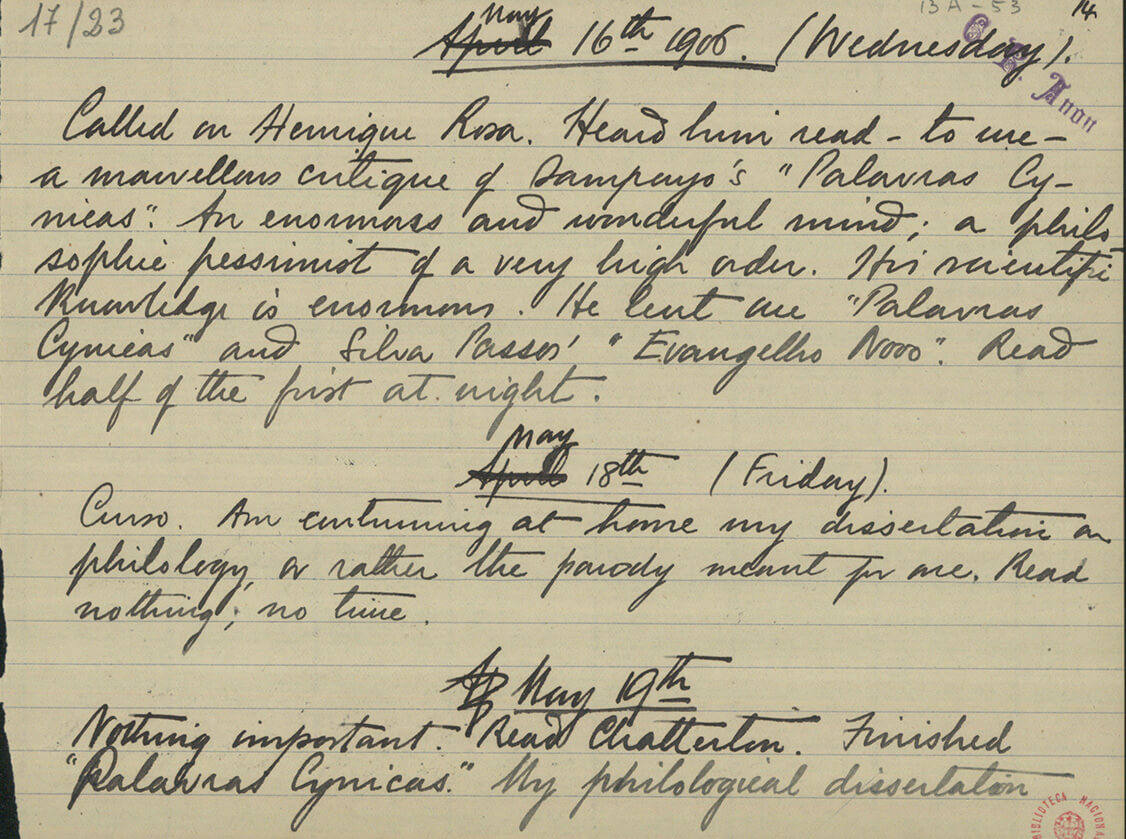 17/23
13A-53
14
C. R. Anon
May
April 16th 1906. (Wednesday).
Called on Henrique Rosa. Heard him read - to me -
a marvellous critique of Sampayo's "Palavras Cy-
nicas". An enormous and wonderful mind; a philo-
sophic pessimist of a very high order. His scientific
knowledge is enormous. He lent me "Palavras
Cynicas" and Silva Passos' "Evangelho Novo". Read
half of the first at night.
May
April 18th (Friday).
Curso. Am continuing at home my dissertation on
philology, or rather the parody meant for one. Read
nothing; no time.
Ap May 19th
Nothing important. Read Chatterton. Finished
"Palavras Cynicas." My philological dissertation
BIBLIOTECA NACIONAL